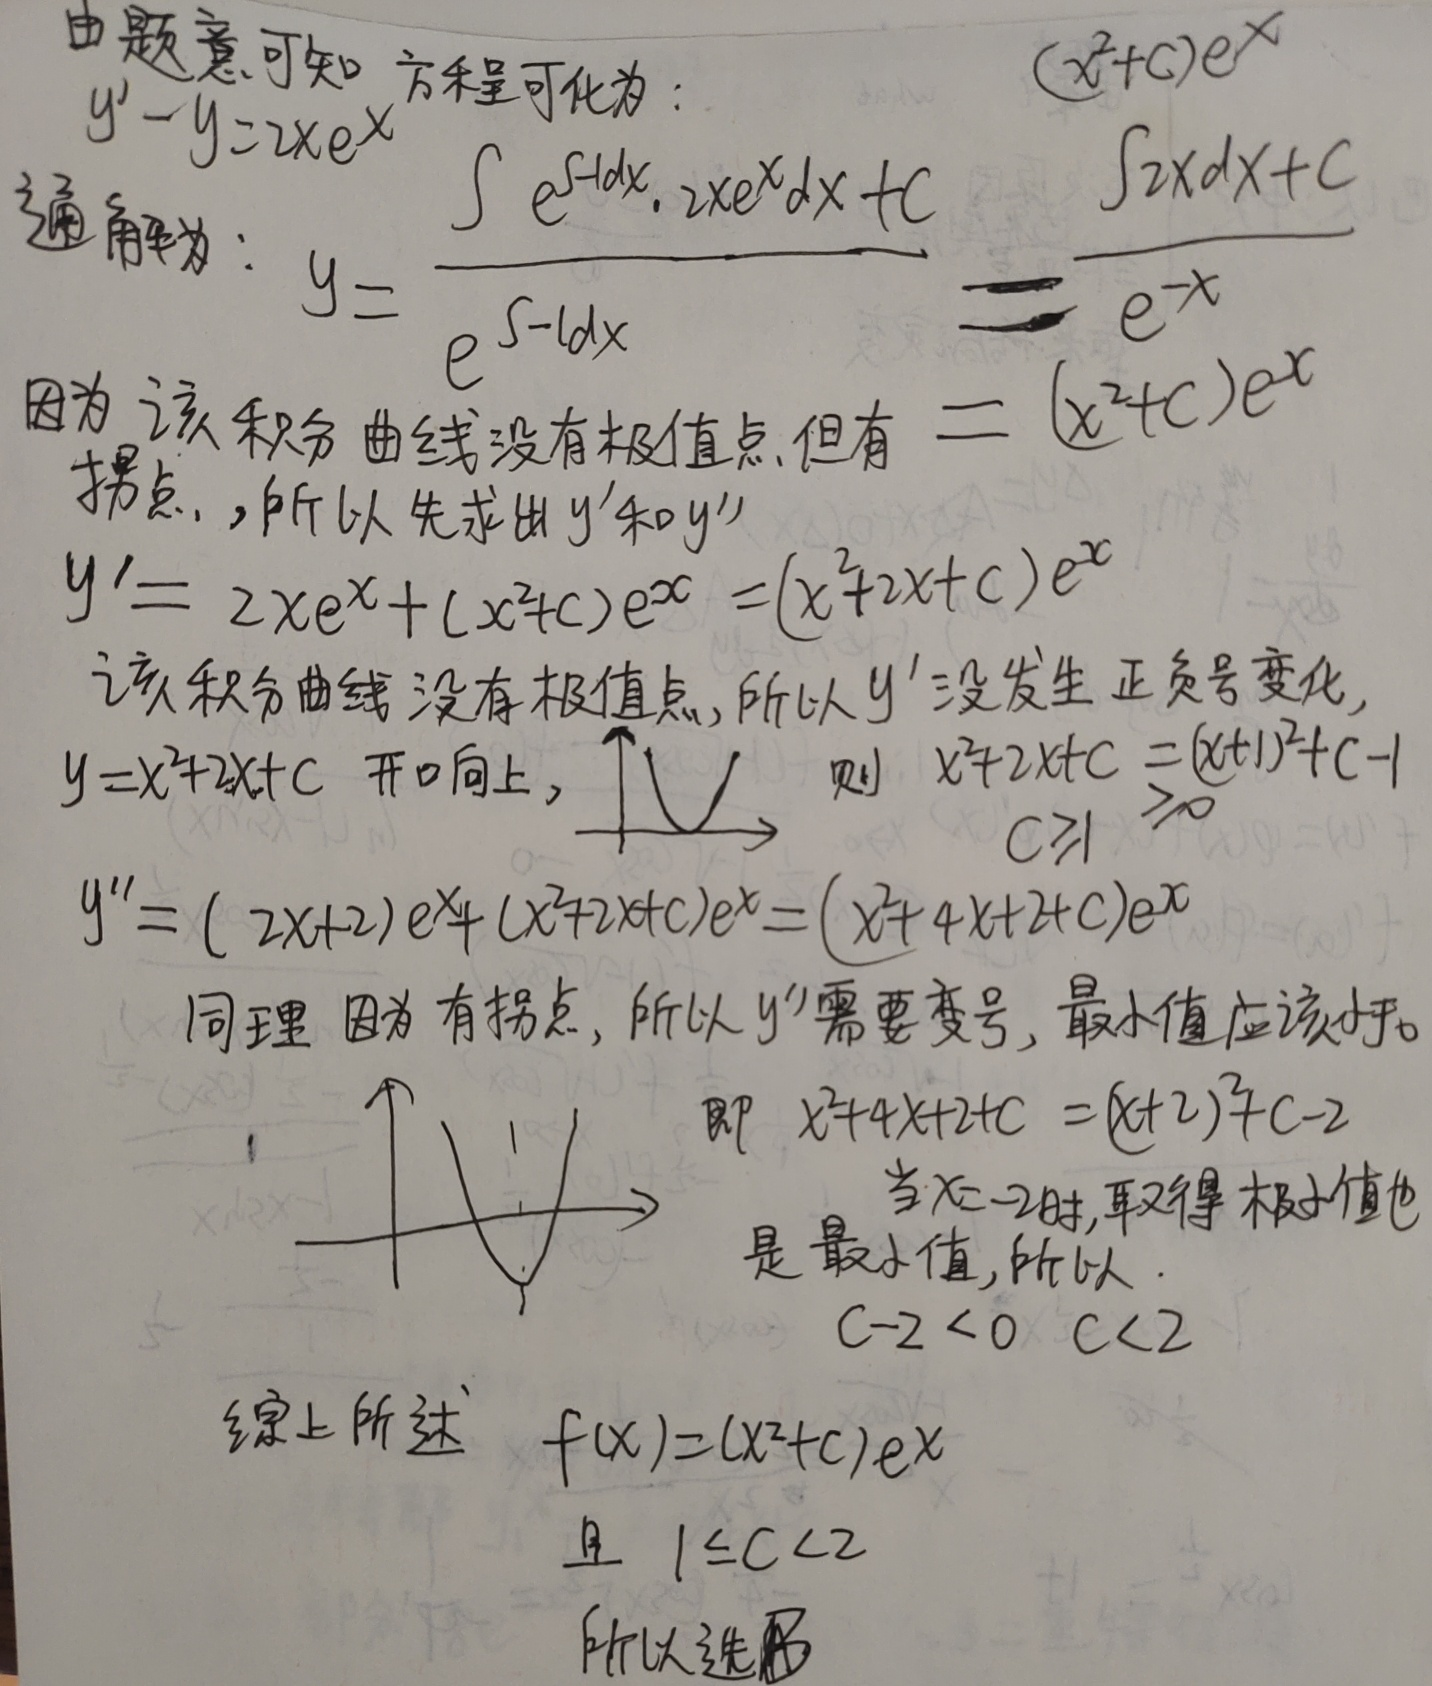 由题意可知 方程可化为:
(x²+C)eˣ
y'-y=2xeˣ
通解为: y= ∫e^∫-1dx·2xeˣdx+C / e^∫-1dx = ∫2xdx+C / e^-x
= (x²+C)eˣ
因为该积分曲线没有极值点,但有
拐点,所以先求出y'和y''
y'= 2xeˣ+(x²+C)eˣ =(x²+2x+C)eˣ
该积分曲线没有极值点,所以y'没发生正负号变化,
y=x²+2x+C 开口向上, 则 x²+2x+C =(x+1)²+C-1
≥0
C≥1
y''=(2x+2)eˣ+(x²+2x+C)eˣ=(x²+4x+2+C)eˣ
同理 因为有拐点,所以y''需要变号,最小值应该小于0
即 x²+4x+2+C =(x+2)²+C-2
当x=-2时,取得极小值也
是最小值,所以.
C-2<0 C<2
综上所述 f(x)=(x²+C)eˣ
且 1≤C<2
所以选B